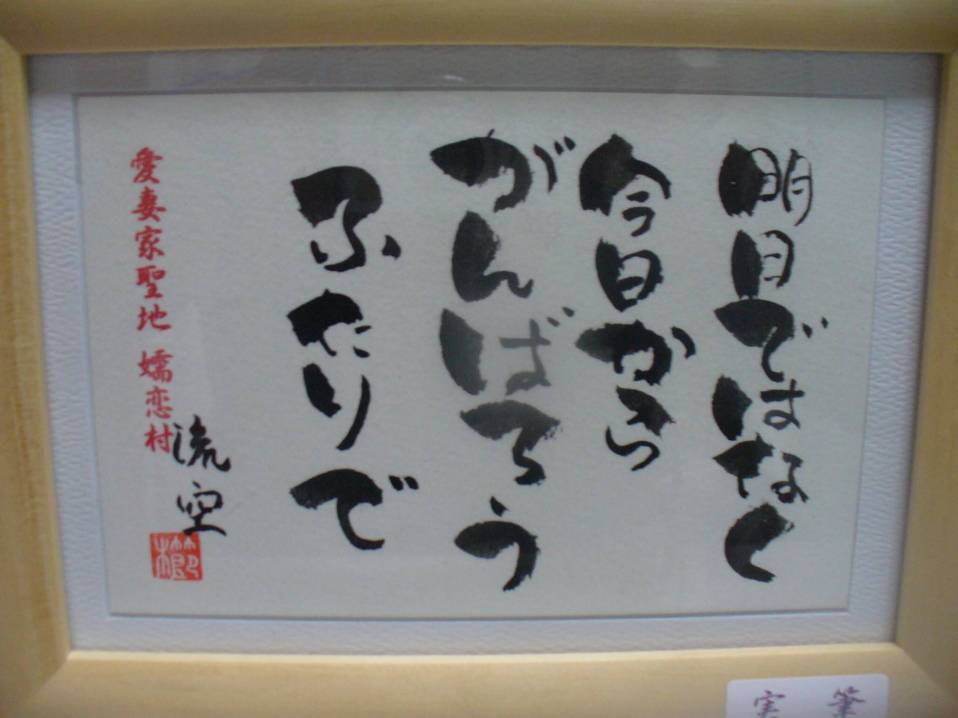 明日ではなく
今日から
がんばろう
ふたりで
流空
愛妻家聖地 嬬恋村
実筆